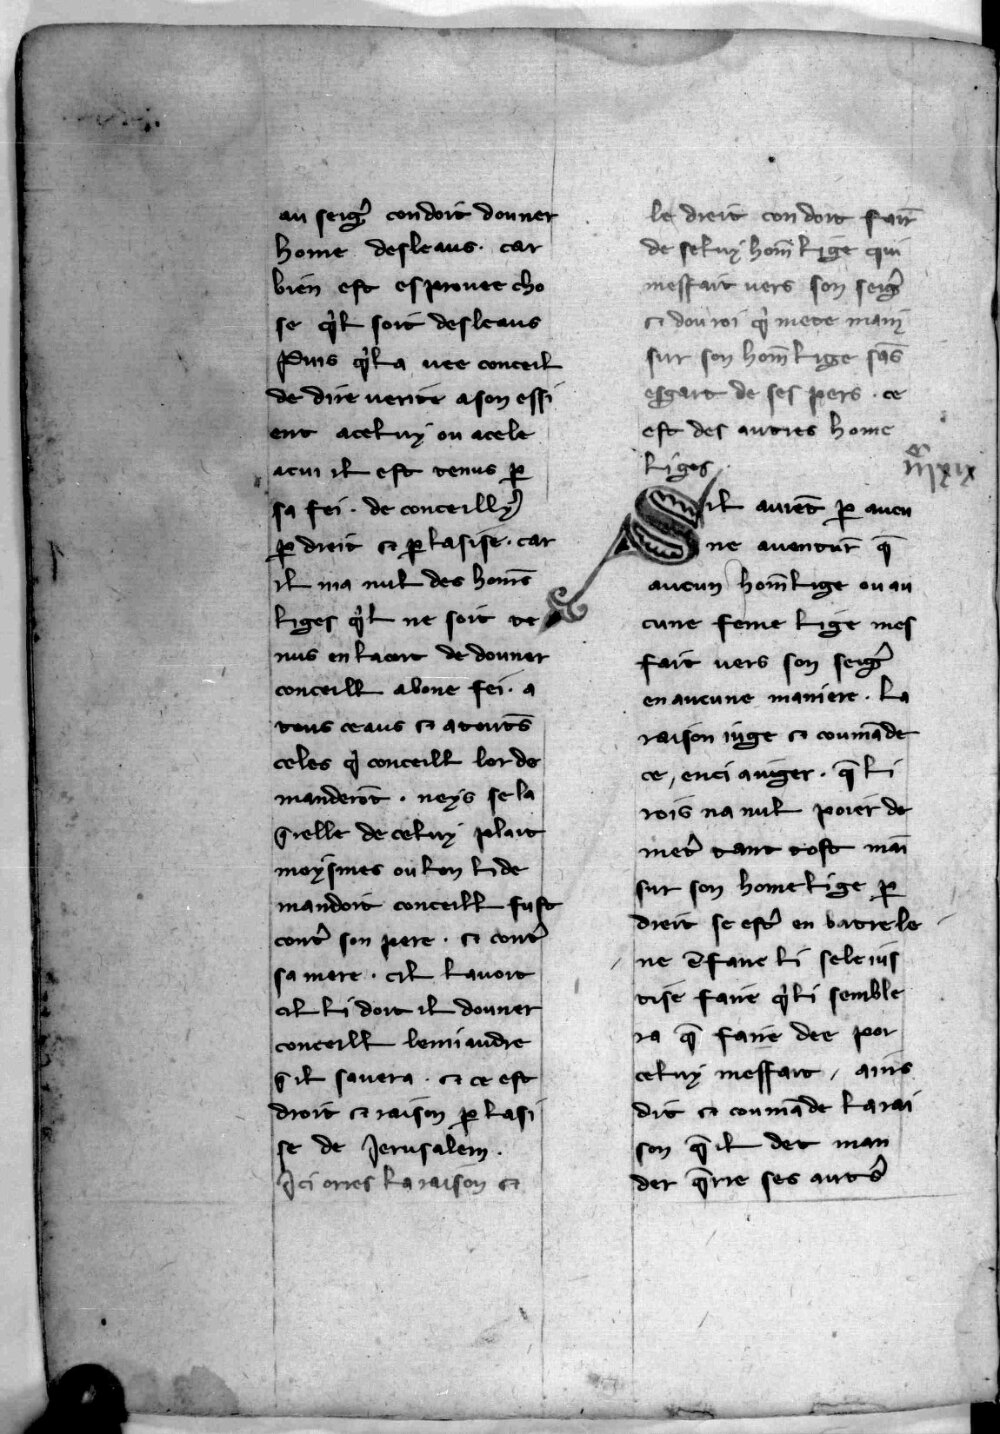 au seigᷣ condoit donner
home desleaus · car
bien est esprovee cho
se qͥl soit desleaus
Puis qͥl a vee conceil
de dire verite a son essi
ent a celuy ou a cele
a cui il est tenus p̱
sa fei · de conceillyᷣ
p̱ dreit et p̱ lasise · car
il ma nul des homēs
liges qͥl ne soit te
nus en lacort de donner
conceill a bone fei · a
tous ceaus et a toutēs
celes qͥ conceill lor de
manderōt · neys se la
q̄relle de celuy plait
meysmes ou lon li de
mandoit conceill fust
contᷣ son pere · et contᷣ
sa mere · cil lavoit
cil li doit il donner
conceill lemiaudre
q̄il savera · et ce est
droit et raison p̱ lasi
se de Jerusalem ·
Jci orres la raison et
le dreit con doit fair̄
de seluy hom̄ lige qui
meffait vers son seigᷣ
et dou roi qͥ mete main
sur son hom̄ lige sās
esgart de ses pers · ce
est des autres home
liges ·
Sil avient̄ p̱ aucu
ne aventur̄ q̄
aucun hom̄ lige ou au
cune feme lige mes
fait vers son seigᷣ
en aucune maniere · la
raison iuge et coumāde
ce, enci a iuger · q̄ li
rois na nul poier de
metᷣ tant tost māi
sur son home lige p̱
dreit se estᷣ en batre le
ne ē fare li sele ius
tise faire qͥ li semble
ra q̄ faire dee por
celuy meffait, ains
dit et coumāde la rai
son q̄ il det man
der q̄rre ses autᷣs